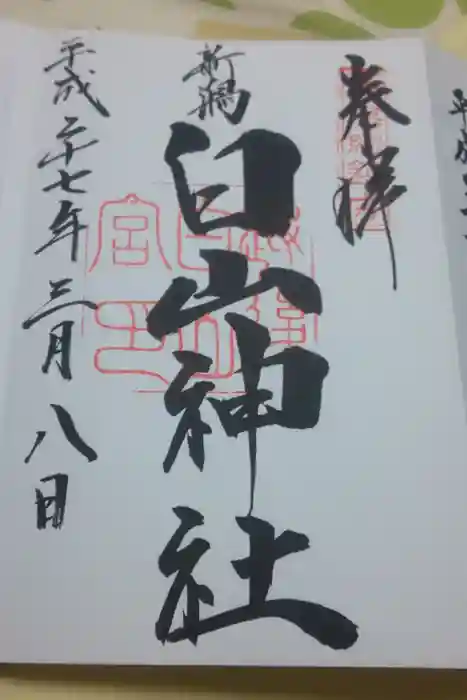 奉拝
新潟
白山神社
平成二十七年三月八日